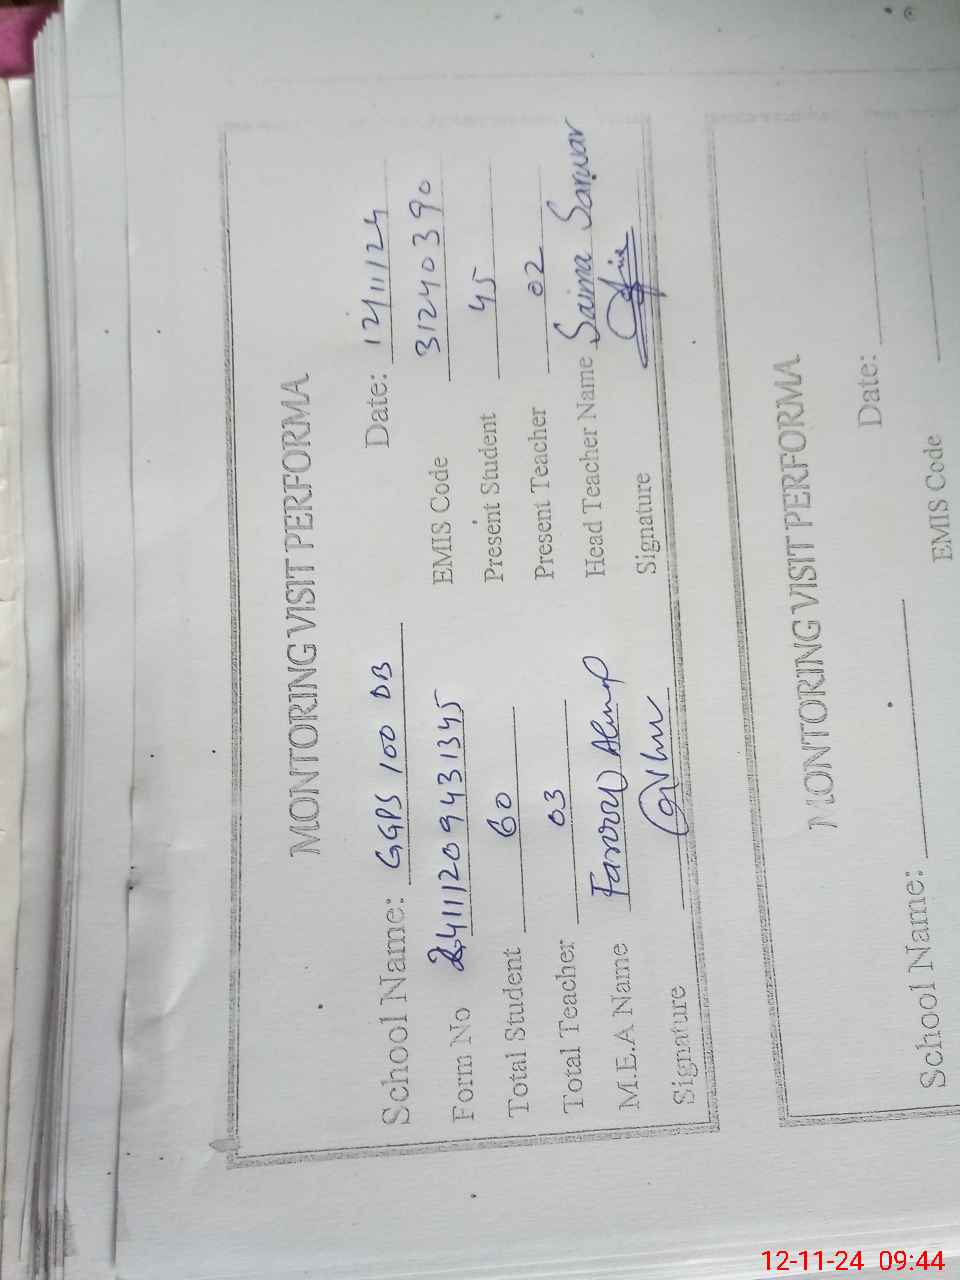 MONTORING VISIT PERFORMA
School Name: GGPS 100 DB Date: 12/11/24
Form No 24111209431345 EMIS Code 31240390
Total Student 60 Present Student 45
Total Teacher 03 Present Teacher 02
M.E.A Name Farooq Ahmad Head Teacher Name Saima Sarwar
Signature Signature
MONTORING VISIT PERFORMA
School Name: Date:
EMIS Code
12-11-24 09:44